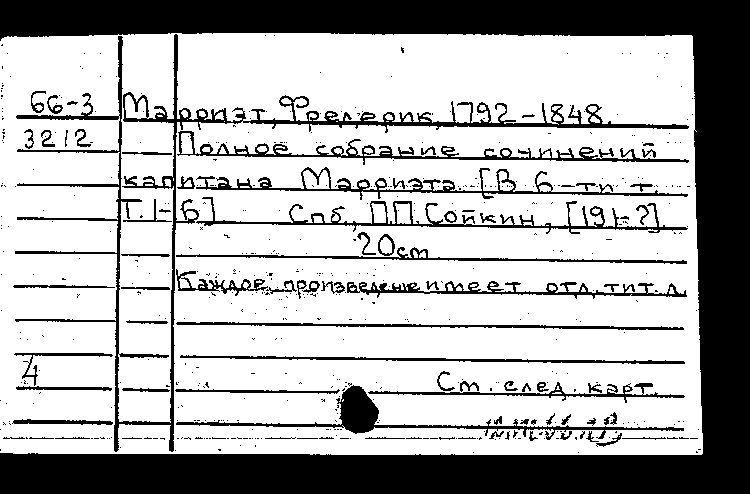 66-3 Марриэт, Фредерик, 1792-1848.
3212 Полное собрание сочинений
капитана Марриэта. [В 6-ти т.
Т.1-6] Спб., П.П.Сойкин, [191-?]
20cm
Каждое произведение имеет отд. тит. л.
4 См. след. карт.